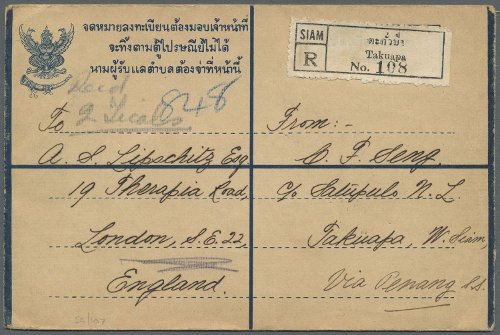 จดหมายลงทะเบียนต้องมอบเจ้าหน้าที่
จะทิ้งตามตู้ไปรษณีย์ไม่ได้
นามผู้รับแลตำบลต้องจ่าที่หน้านี้
SIAM
R
ตะกั่วป่า
Takuapa
No. 108
Recd
2 Ticals
848
To
A. S. Lipschitz Esq
19 Therapia Road,
London, S.E. 22,
England.
From:-
C. P. Seng.
c/o Satupulo N. L.
Takuapa, W. Siam,
Via Penang S.S.